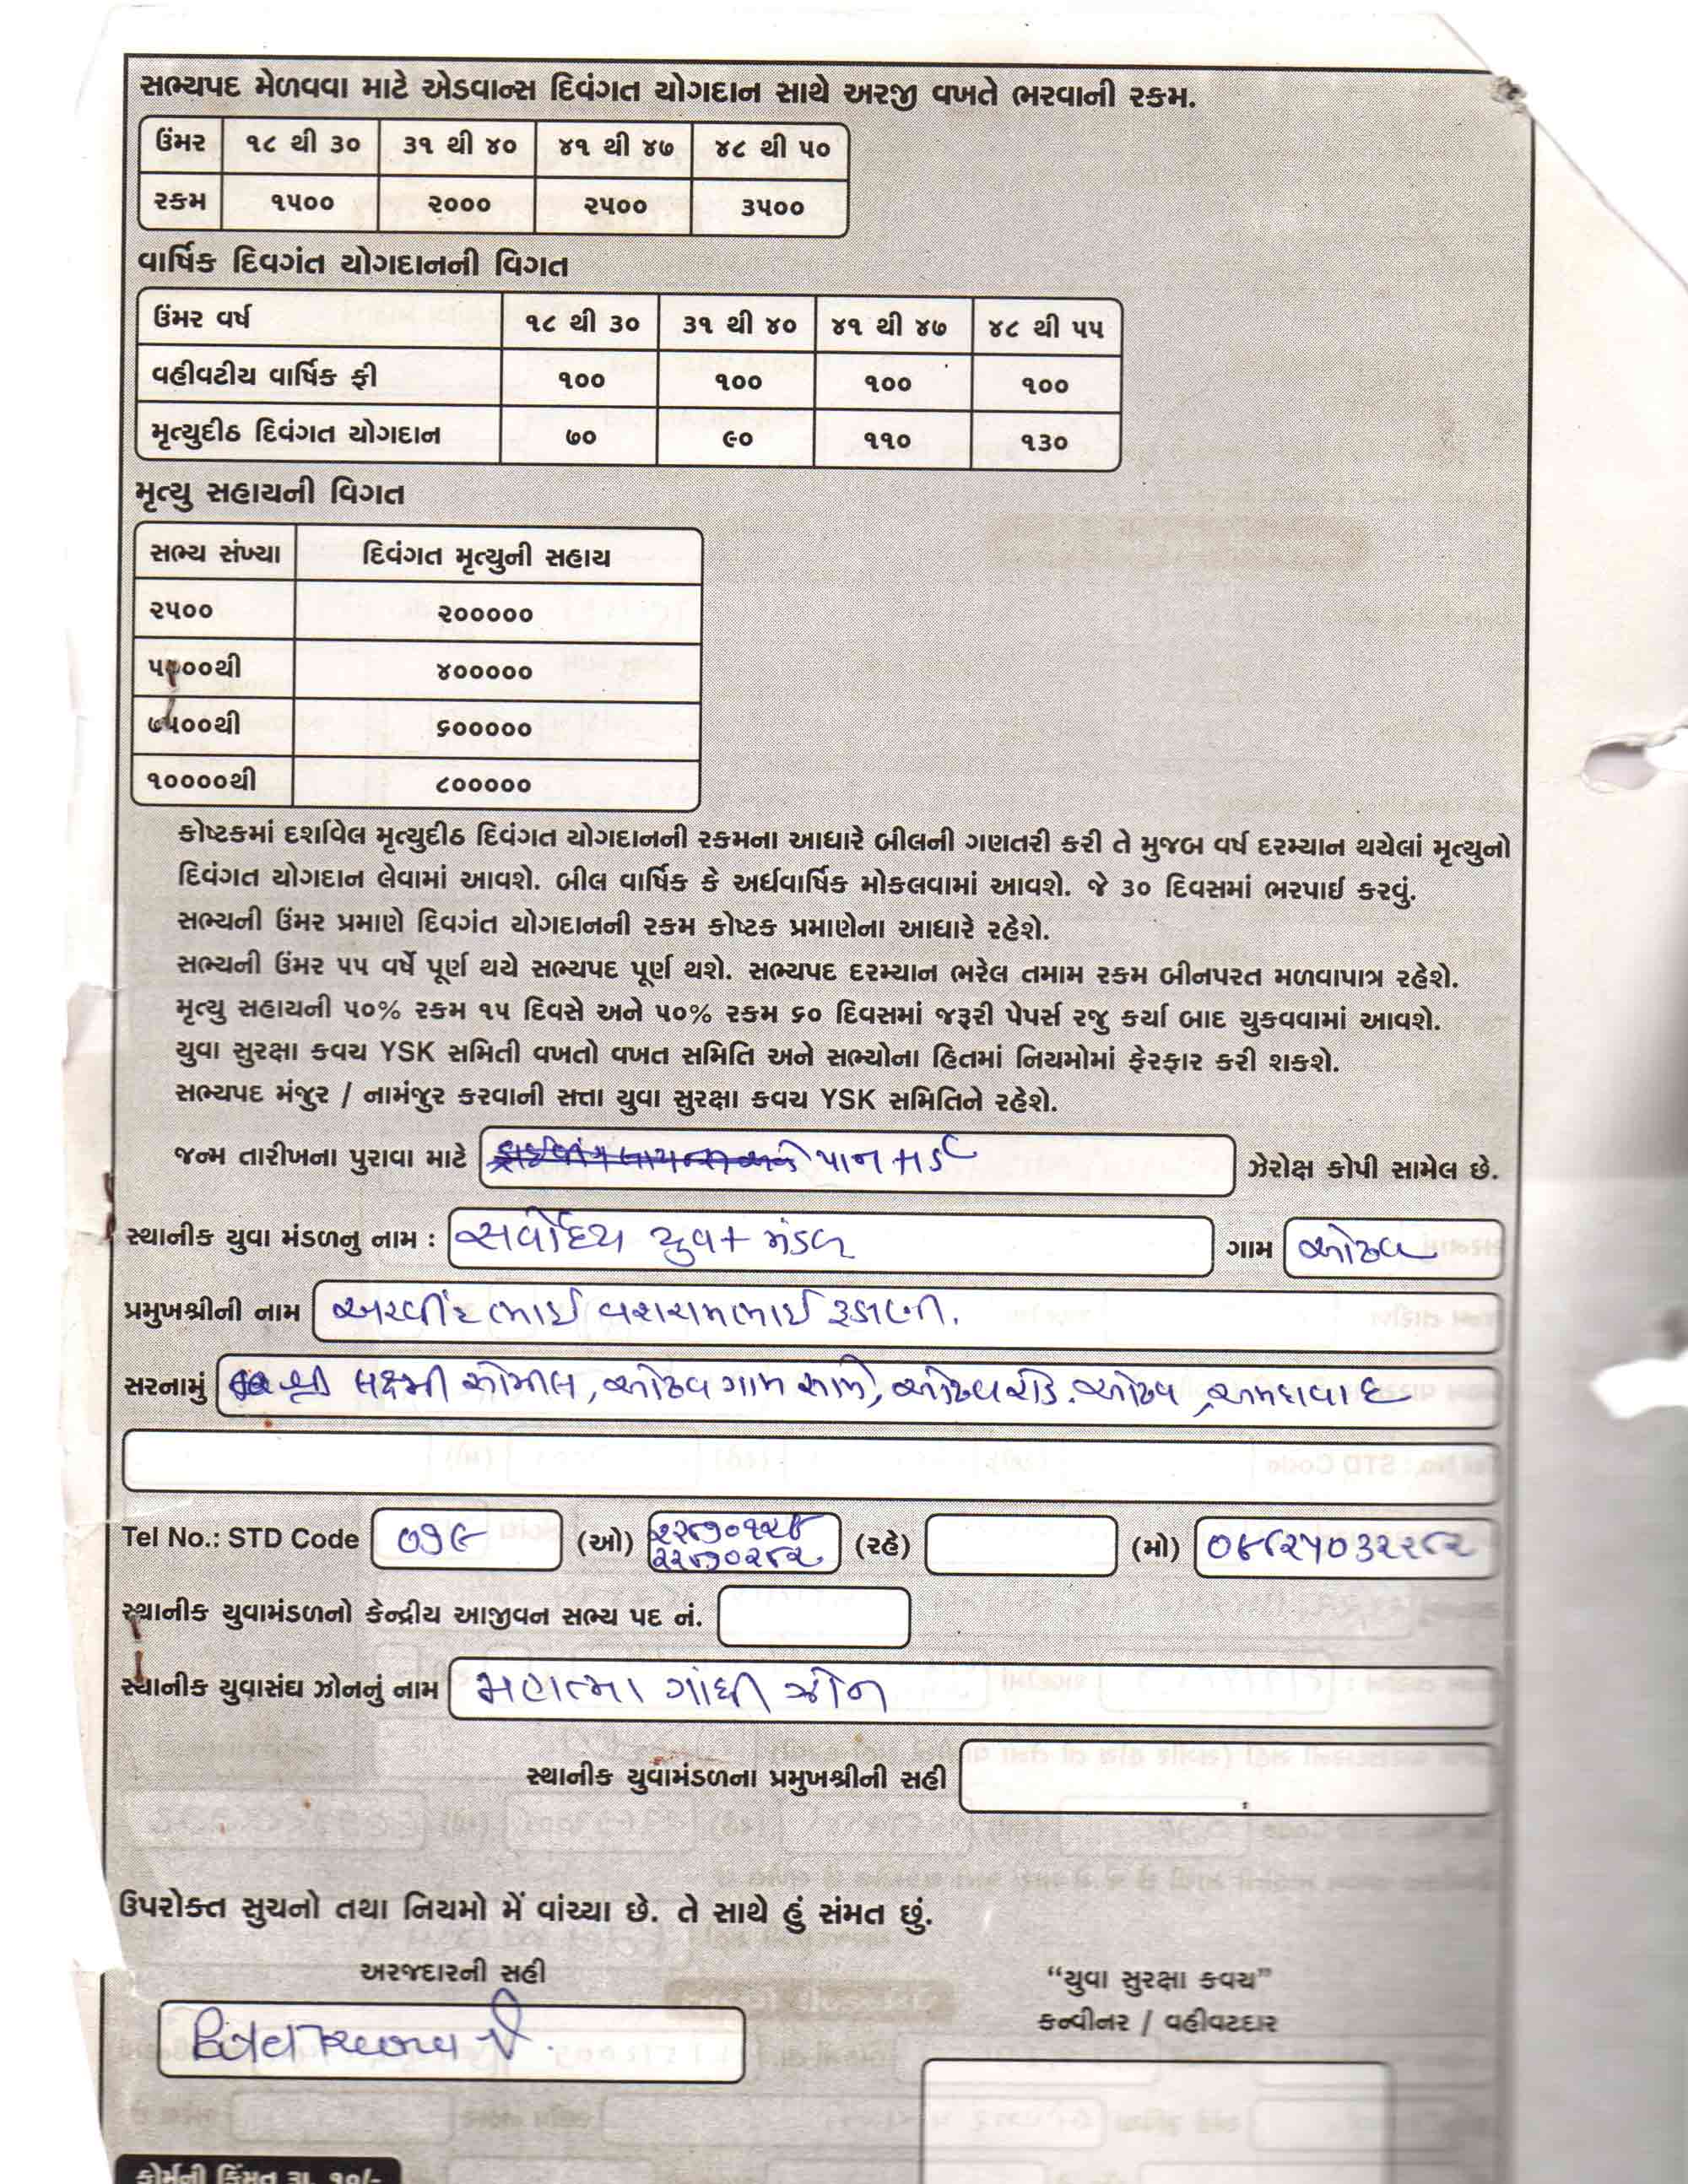 સભ્યપદ મેળવવા માટે એડવાન્સ દિવંગત યોગદાન સાથે અરજી વખતે ભરવાની રકમ.
ઉંમર ૧૮ થી ૩૦ ૩૧ થી ૪૦ ૪૧ થી ૪૭ ૪૮ થી ૫૦
રકમ ૧૫૦૦ ૨૦૦૦ ૨૫૦૦ ૩૫૦૦
વાર્ષિક દિવગંત યોગદાનની વિગત
ઉંમર વર્ષ ૧૮ થી ૩૦ ૩૧ થી ૪૦ ૪૧ થી ૪૭ ૪૮ થી ૫૫
વહીવટીય વાર્ષિક ફી ૧૦૦ ૧૦૦ ૧૦૦ ૧૦૦
મૃત્યુદીઠ દિવંગત યોગદાન ૭૦ ૯૦ ૧૧૦ ૧૩૦
મૃત્યુ સહાયની વિગત
સભ્ય સંખ્યા દિવંગત મૃત્યુની સહાય
૨૫૦૦ ૨૦૦૦૦૦
૫૦૦૦થી ૪૦૦૦૦૦
૭૫૦૦થી ૬૦૦૦૦૦
૧૦૦૦૦થી ૮૦૦૦૦૦
કોષ્ટકમાં દર્શાવેલ મૃત્યુદીઠ દિવંગત યોગદાનની રકમના આધારે બીલની ગણતરી કરી તે મુજબ વર્ષ દરમ્યાન થયેલાં મૃત્યુનો
દિવંગત યોગદાન લેવામાં આવશે. બીલ વાર્ષિક કે અર્ધવાર્ષિક મોકલવામાં આવશે. જે ૩૦ દિવસમાં ભરપાઈ કરવું.
સભ્યની ઉંમર પ્રમાણે દિવગંત યોગદાનની રકમ કોષ્ટક પ્રમાણેના આધારે રહેશે.
સભ્યની ઉંમર ૫૫ વર્ષે પૂર્ણ થયે સભ્યપદ પૂર્ણ થશે. સભ્યપદ દરમ્યાન ભરેલ તમામ રકમ બીનપરત મળવાપાત્ર રહેશે.
મૃત્યુ સહાયની ૫૦% રકમ ૧૫ દિવસે અને ૫૦% રકમ ૬૦ દિવસમાં જરૂરી પેપર્સ રજુ કર્યા બાદ ચુકવવામાં આવશે.
યુવા સુરક્ષા કવચ YSK સમિતી વખતો વખત સમિતિ અને સભ્યોના હિતમાં નિયમોમાં ફેરફાર કરી શકશે.
સભ્યપદ મંજુર / નામંજુર કરવાની સત્તા યુવા સુરક્ષા કવચ YSK સમિતિને રહેશે.
જન્મ તારીખના પુરાવા માટે પાન કાર્ડ ઝેરોક્ષ કોપી સામેલ છે.
સ્થાનીક યુવા મંડળનુ નામ : સર્વોદય યુવક મંડળ ગામ ઓઢવ
પ્રમુખશ્રીની નામ અરવીંદભાઈ વશરામભાઈ રૂડાણી.
સરનામું શ્રી લક્ષ્મી સોમીલ, ઓઢવ ગામ સામે, ઓઢવ રોડ. ઓઢવ, અમદાવાદ
Tel No.: STD Code ૦૭૯ (ઓ) (રહે) (મો)
૨૨૮૭૦૨૮૨
સ્થાનીક યુવામંડળનો કેન્દ્રીય આજીવન સભ્ય પદ નં.
સ્થાનીક યુવાસંઘ ઝોનનું નામ મહાત્મા ગાંધી ઝોન
સ્થાનીક યુવામંડળના પ્રમુખશ્રીની સહી
ઉપરોક્ત સુચનો તથા નિયમો મેં વાંચ્યા છે. તે સાથે હું સંમત છું.
અરજદારની સહી
“યુવા સુરક્ષા કવચ”
કન્વીનર / વહીવટદાર
ફોર્મની કિંમત રૂા. ૧૦/-